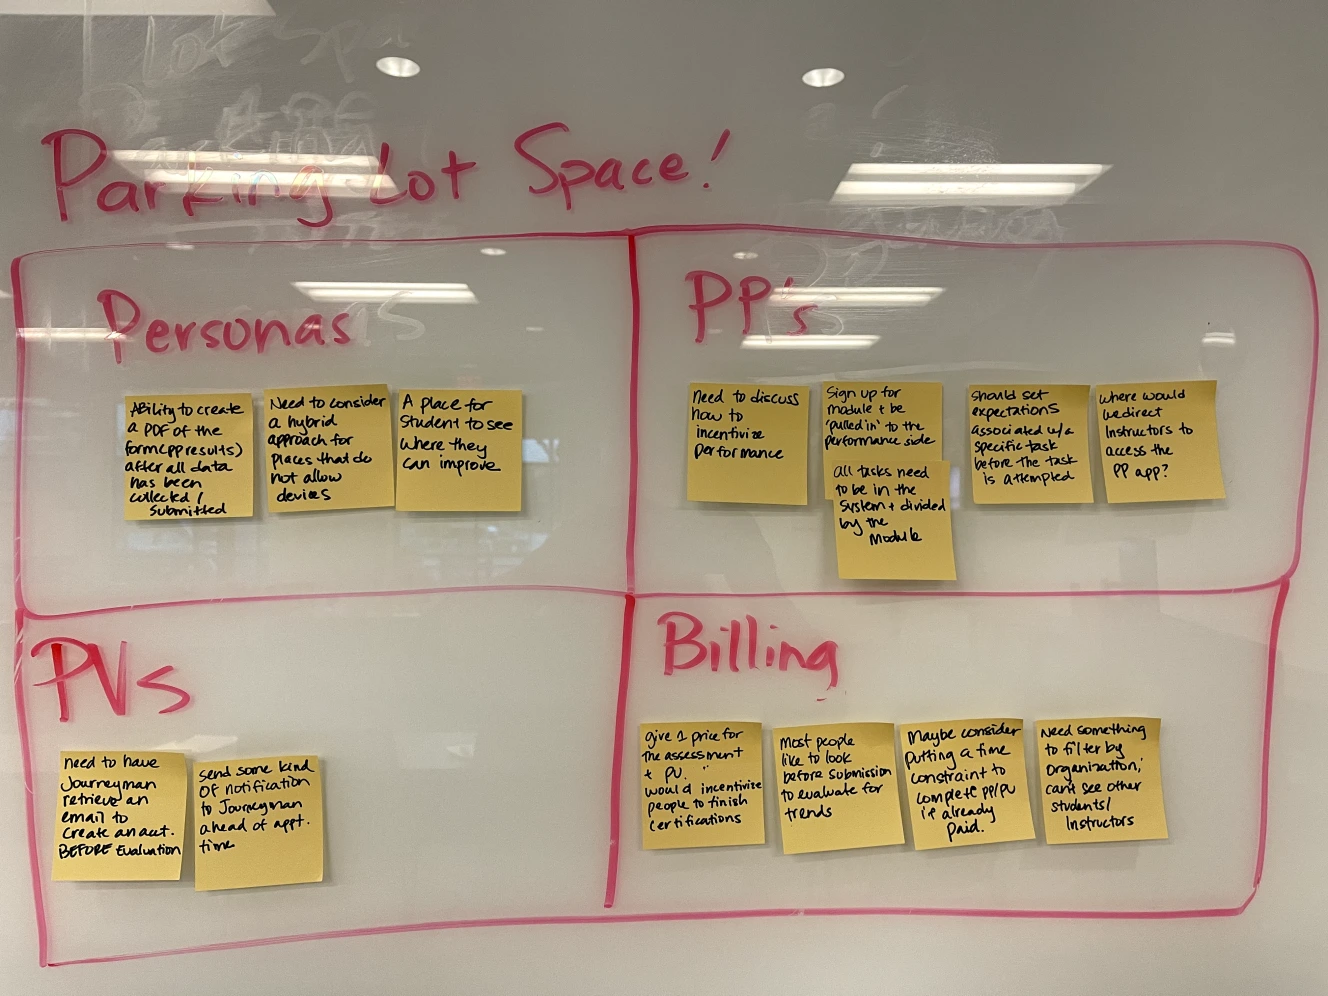 Parking Lot Space!
Personas
Ability to create
a PDF of the
form (pp results)
after all data
has been
collected /
Submitted
Need to consider
a hybrid
approach for
places that do
not allow
devices
A place for
Student to see
where they
can improve
PP's
need to discuss
how to
incentivize
performance
Sign up for
module + be
'pulled in' to the
performance side
all tasks need
to be in the
System + divided
by the
Module
should set
expectations
associated w/a
specific task
before the task
is attempted
where would
we direct
Instructors to
access the
PP app?
PVs
need to have
Journeyman
retrieve an
email to
create an acct.
BEFORE Evaluation
send some kind
of notification
to Journeyman
ahead of appt.
time
Billing
give 1 price for
the assessment
+ PV.
would incentivize
people to finish
certifications
Most people
like to look
before submission
to evaluate for
trends
Maybe consider
putting a time
constraint to
complete PP/PV
if already
paid.
Need something
to filter by
Organization;
can't see other
students/
Instructors